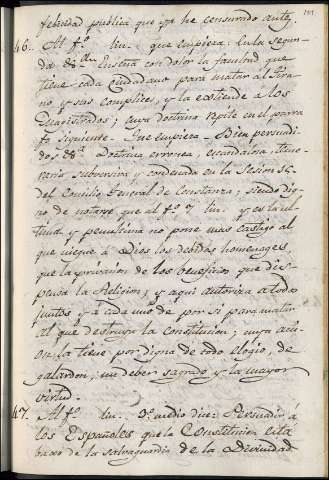 felicidad publica que ya he censurado antes.
46. Al f.º lin. que empieza: En la segun-
da &.ª Enseña con dolor la facultad que
tiene cada Ciudadano para matar al tira-
no y sus complices, y la extiende a los
Magistrados; cuya doctrina repite en el parra-
fo siguiente. Que empieza = Bien persuadi-
dos &.ª Doctrina erronea, escandalosa,
subversiva y condenada en la Sesion
del Concilio General de Constanza; siendo dig-
no de notarse que al f.º 7 lin. y es la ul-
tima y penultima no pone mas castigo al
que niegue á Dios los debidos homenages,
que la privacion de los beneficios que dis-
pensa la Religion; y aqui autoriza a todos
juntos y a cada uno de por si para matar
al que destruya la constitucion; cuya acci-
on la tiene por digna de todo elogio, de
galardon, un deber sagrado y la mayor
virtud.
47. Al f.º lin. 9.ª medio dice: Persuadir á
los Españoles que la Constitucion está
baxo de la salvaguardia de la Divinidad